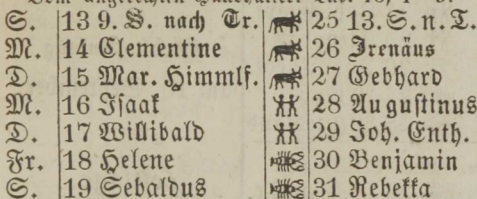 S. 13 9. S. nach Tr. 25 13. S. n. T.
M. 14 Clementine 26 Irenäus
D. 15 Mar. Himmlf. 27 Gebhard
M. 16 Isaak 28 Augustinus
D. 17 Willibald 29 Joh. Enth.
Fr. 18 Helene 30 Benjamin
S. 19 Sebaldus 31 Rebekka